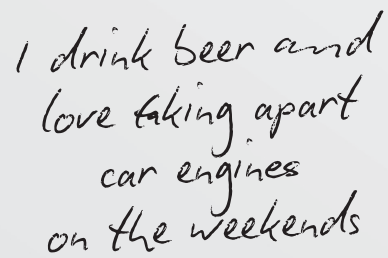 I drink beer and
love taking apart
car engines
on the weekends